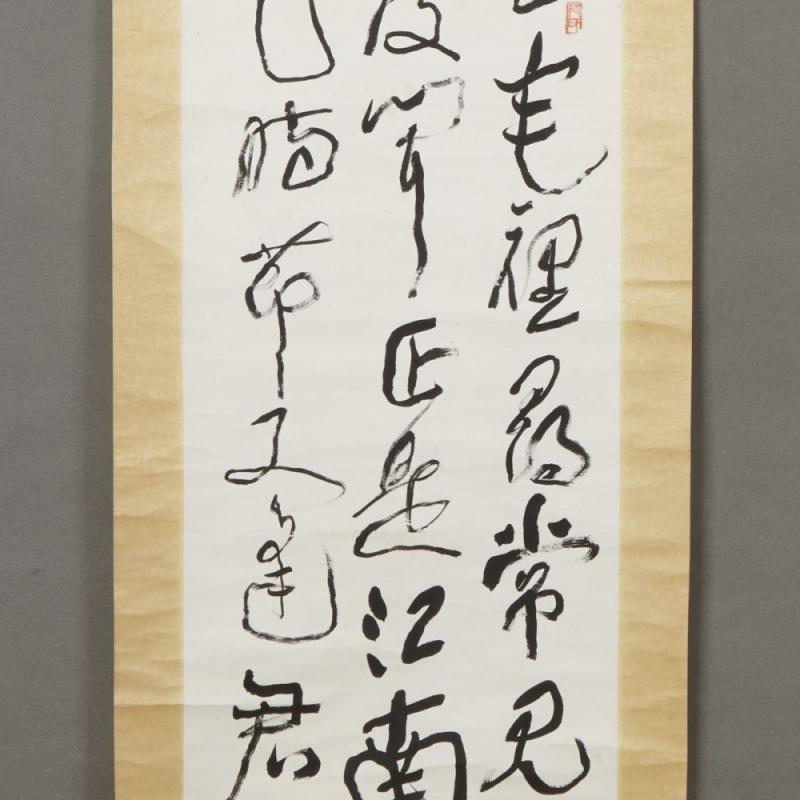 宅裡尋常見
度聞正是江南
花時節又逢君